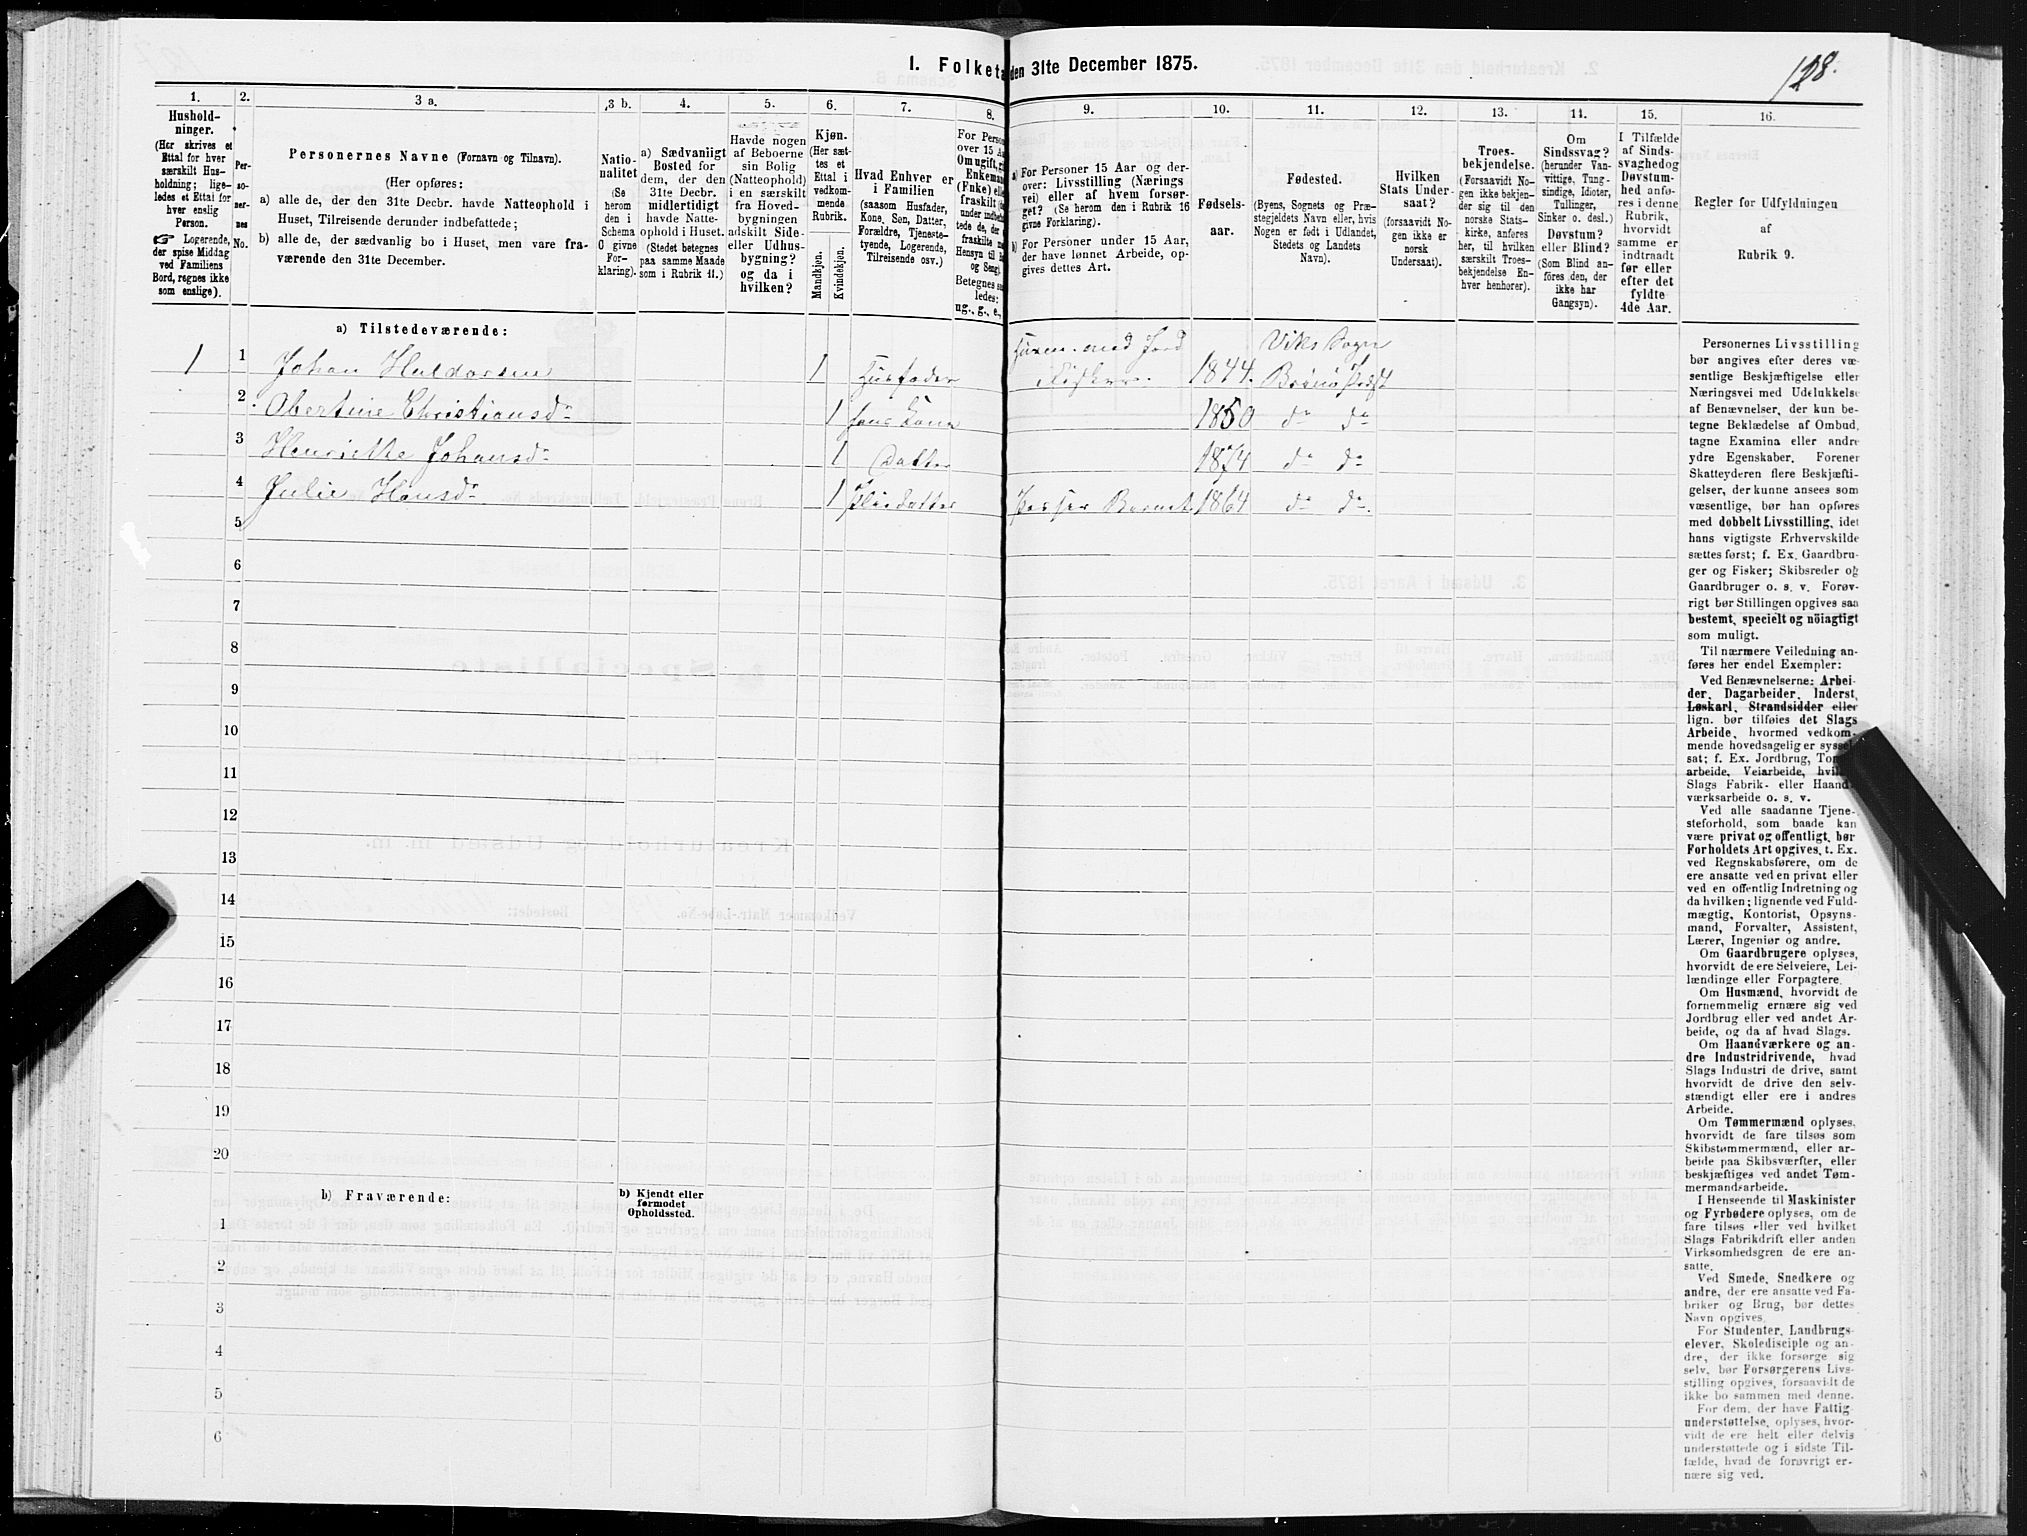 1. Folketa den 31te December 1875.
128.
1.
Hushold-
ninger.
(Her skrives et
Ettal for hver
særskilt Hus-
holdning; lige-
ledes et Ettal for
hver enslig
Person.
☞ Logerende,
der spise Middag
ved Familiens
Bord, regnes ikke
som enslige).
2.
Per-
so-
ner-
nes
No.
3 a.
Personernes Navne (Fornavn og Tilnavn).
(Her opføres:
a) alle de, der den 31te Decbr. havde Natteophold i
Huset, Tilreisende derunder indbefattede;
b) alle de, der sædvanlig bo i Huset, men vare fra-
værende den 31te December.
3 b.
Natio-
nalitet
(Se
herom
den i
Schema
C givne
For-
klaring).
4.
a) Sædvanligt
Bosted for
dem, der den
31te Decbr.
midlertidigt
havde Natte-
ophold i Huset.
(Stedet betegnes
paa samme Maade
som i Rubrik 11.)
5.
Havde nogen
af Beboerne
sin Bolig
(Natteophold)
i en særskilt
fra Hoved-
bygningen
adskilt Side-
eller Udhus-
bygning?
og da i
hvilken?
6.
Kjøn.
(Her sæt-
tes et
Ettal i
vedkom-
mende
Rubrik.
Mandkjøn.
Kvindekjøn.
7.
Hvad Enhver er
i Familien
(saasom Husfader,
Kone, Søn, Datter,
Forældre, Tjeneste-
tyende, Logerende,
Tilreisende osv.)
8.
For Perso
over 15 Aa
Om ugift, g
Enkema
(Fnke) elle
fraskilt (d
under indbe
tede de, der
fraskilte m
Hensyn til B
og Seng).
Betegnes s
ledes:
ug., g., e.,
9.
a) For Personer 15 Aar og der-
over: Livsstilling (Nærings
vei) eller af hvem forsør-
get? (Se herom den i Rubrik 16
givne Forklaring).
b) For Personer under 15 Aar,
der have lønnet Arbeide, op-
gives dettes Art.
10.
Fødsels-
aar.
11.
Fødested.
(Byens, Sognets og Præ-
stegjeldets Navn eller, hvis
Nogen er født i Udlandet,
Stedets og Landets
Navn).
12.
Hvilken
Stats Under-
saat?
(forsaavidt No-
gen ikke er
norsk
Undersaat).
13.
Troes-
bekjendelse.
(Forsaavidt No-
gen ikke bekjen-
der sig til den
norske Stats-
kirke, anføres
her, til hvilken
særskilt Troes-
bekjendelse En-
hver henhører).
14.
Om
Sindssvag?
(herunder Van-
vittige, Tung-
sindige, Idioter,
Tullinger,
Sinker o. desl.)
Døvstum?
eller Blind?
(Som Blind an-
føres den, der
ikke har
Gangsyn).
15.
I Tilfælde
af Sinds-
svaghed og
Døvstum-
hed anfø-
res i denne
Rubrik,
hvorvidt
samme er
indtraadt
før eller
efter det
fyldte
4de Aar.
16.
Regler for Udfyldningen
af
Rubrik 9.
a) Tilstedeværende:
1 1 Johan Haldorsen 1 Husfader Husm. med Jord Fisker. 1844. Viks Sogn Brønø Præst
2 Obertine Christiansdr 1 hans Kone 1850 do do
3 Henriette Johansdr 1 Datter 1874 do do
4 Julie Hansdr 1 Pleiedatter Passer Barnet. 1864 do do.
5
6
7
8
9
10
11
12
13
14
15
16
17
18
19
20
b) Fraværende:
b) Kjendt eller
formodet
Opholdssted.
1
2
3
4
5
6
Personernes Livsstilling
bør angives efter deres væ-
sentlige Beskjæftigelse eller
Næringsvei med Udelukkelse
af Benævnelser, der kun be-
tegne Beklædelse af Ombud,
tagne Examina eller andre
ydre Egenskaber. Forener
Skatteyderen flere Beskjæfti-
gelser, der kunne ansees som
væsentlige, bør han opføres
med dobbelt Livsstilling, idet
hans vigtigste Erhvervskilde
sættes først; f. Ex. Gaardbru-
ger og Fisker; Skibsreder og
Gaardbruger o. s. v. Forøv-
rigt bør Stillingen opgives saa
bestemt, specielt og nöiagtigt
som muligt.
Til nærmere Veiledning an-
føres her endel Exempler:
Ved Benævnelserne: Arbei-
der, Dagarbeider, Inderst,
Løskarl, Strandsidder eller
lign. bør tilføies det Slags
Arbeide, hvormed vedkom-
mende hovedsagelig er syssel
sat; f. Ex. Jordbrug, Tom
arbeide, Veiarbeide, hvil
Slags Fabrik- eller Haand
værksarbeide o. s. v.
Ved alle saadanne Tjene-
steforhold, som baade kan
være privat og offentligt, bør
Forholdets Art opgives, t. Ex.
ved Regnskabsførere, om de
ere ansatte ved en privat eller
ved en offentlig Indretning og
da hvilken; lignende ved Fuld-
mægtig, Kontorist, Opsyns-
mand, Forvalter, Assistent,
Lærer, Ingeniør og andre.
Om Gaardbrugere oplyses,
hvorvidt de ere Selveiere, Lei-
lændinge eller Forpagtere.
Om Husmænd, hvorvidt de
fornemmelig ernære sig ved
Jordbrug eller ved andet Ar-
beide, og da af hvad Slags.
Om Haandværkere og an-
dre Industridrivende, hvad
Slags Industri de drive, samt
hvorvidt de drive den selv-
stændigt eller ere i andres
Arbeide.
Om Tømmermænd oplyses,
hvorvidt de fare tilsøs som
Skibstømmermænd, eller ar-
beide paa Skibsværfter, eller
beskjæftiges ved andet Tøm-
mermandsarbeide.
I Henseende til Maskinister
og Fyrbødere oplyses, om de
fare tilsøs eller ved hvilket
Slags Fabrikdrift eller anden
Virksomhedsgren de ere an-
satte.
Ved Smede, Snedkere og
andre, der ere ansatte ved Fa-
briker og Brug, bør dettes
Navn opgives.
For Studenter, Landbrugs-
elever, Skoledisciple og an-
dre, der ikke forsørge sig
selv, bør Forsørgerens Livs-
stilling opgives, forsaavidt de
ikke bo sammen med denne.
For dem, der have Fattig-
understøttelse, oplyses, hvor-
vidt de ere helt eller delvis
understøttede og i sidste Til-
fælde, hvad de forøvrigt er-
nære sig ved.